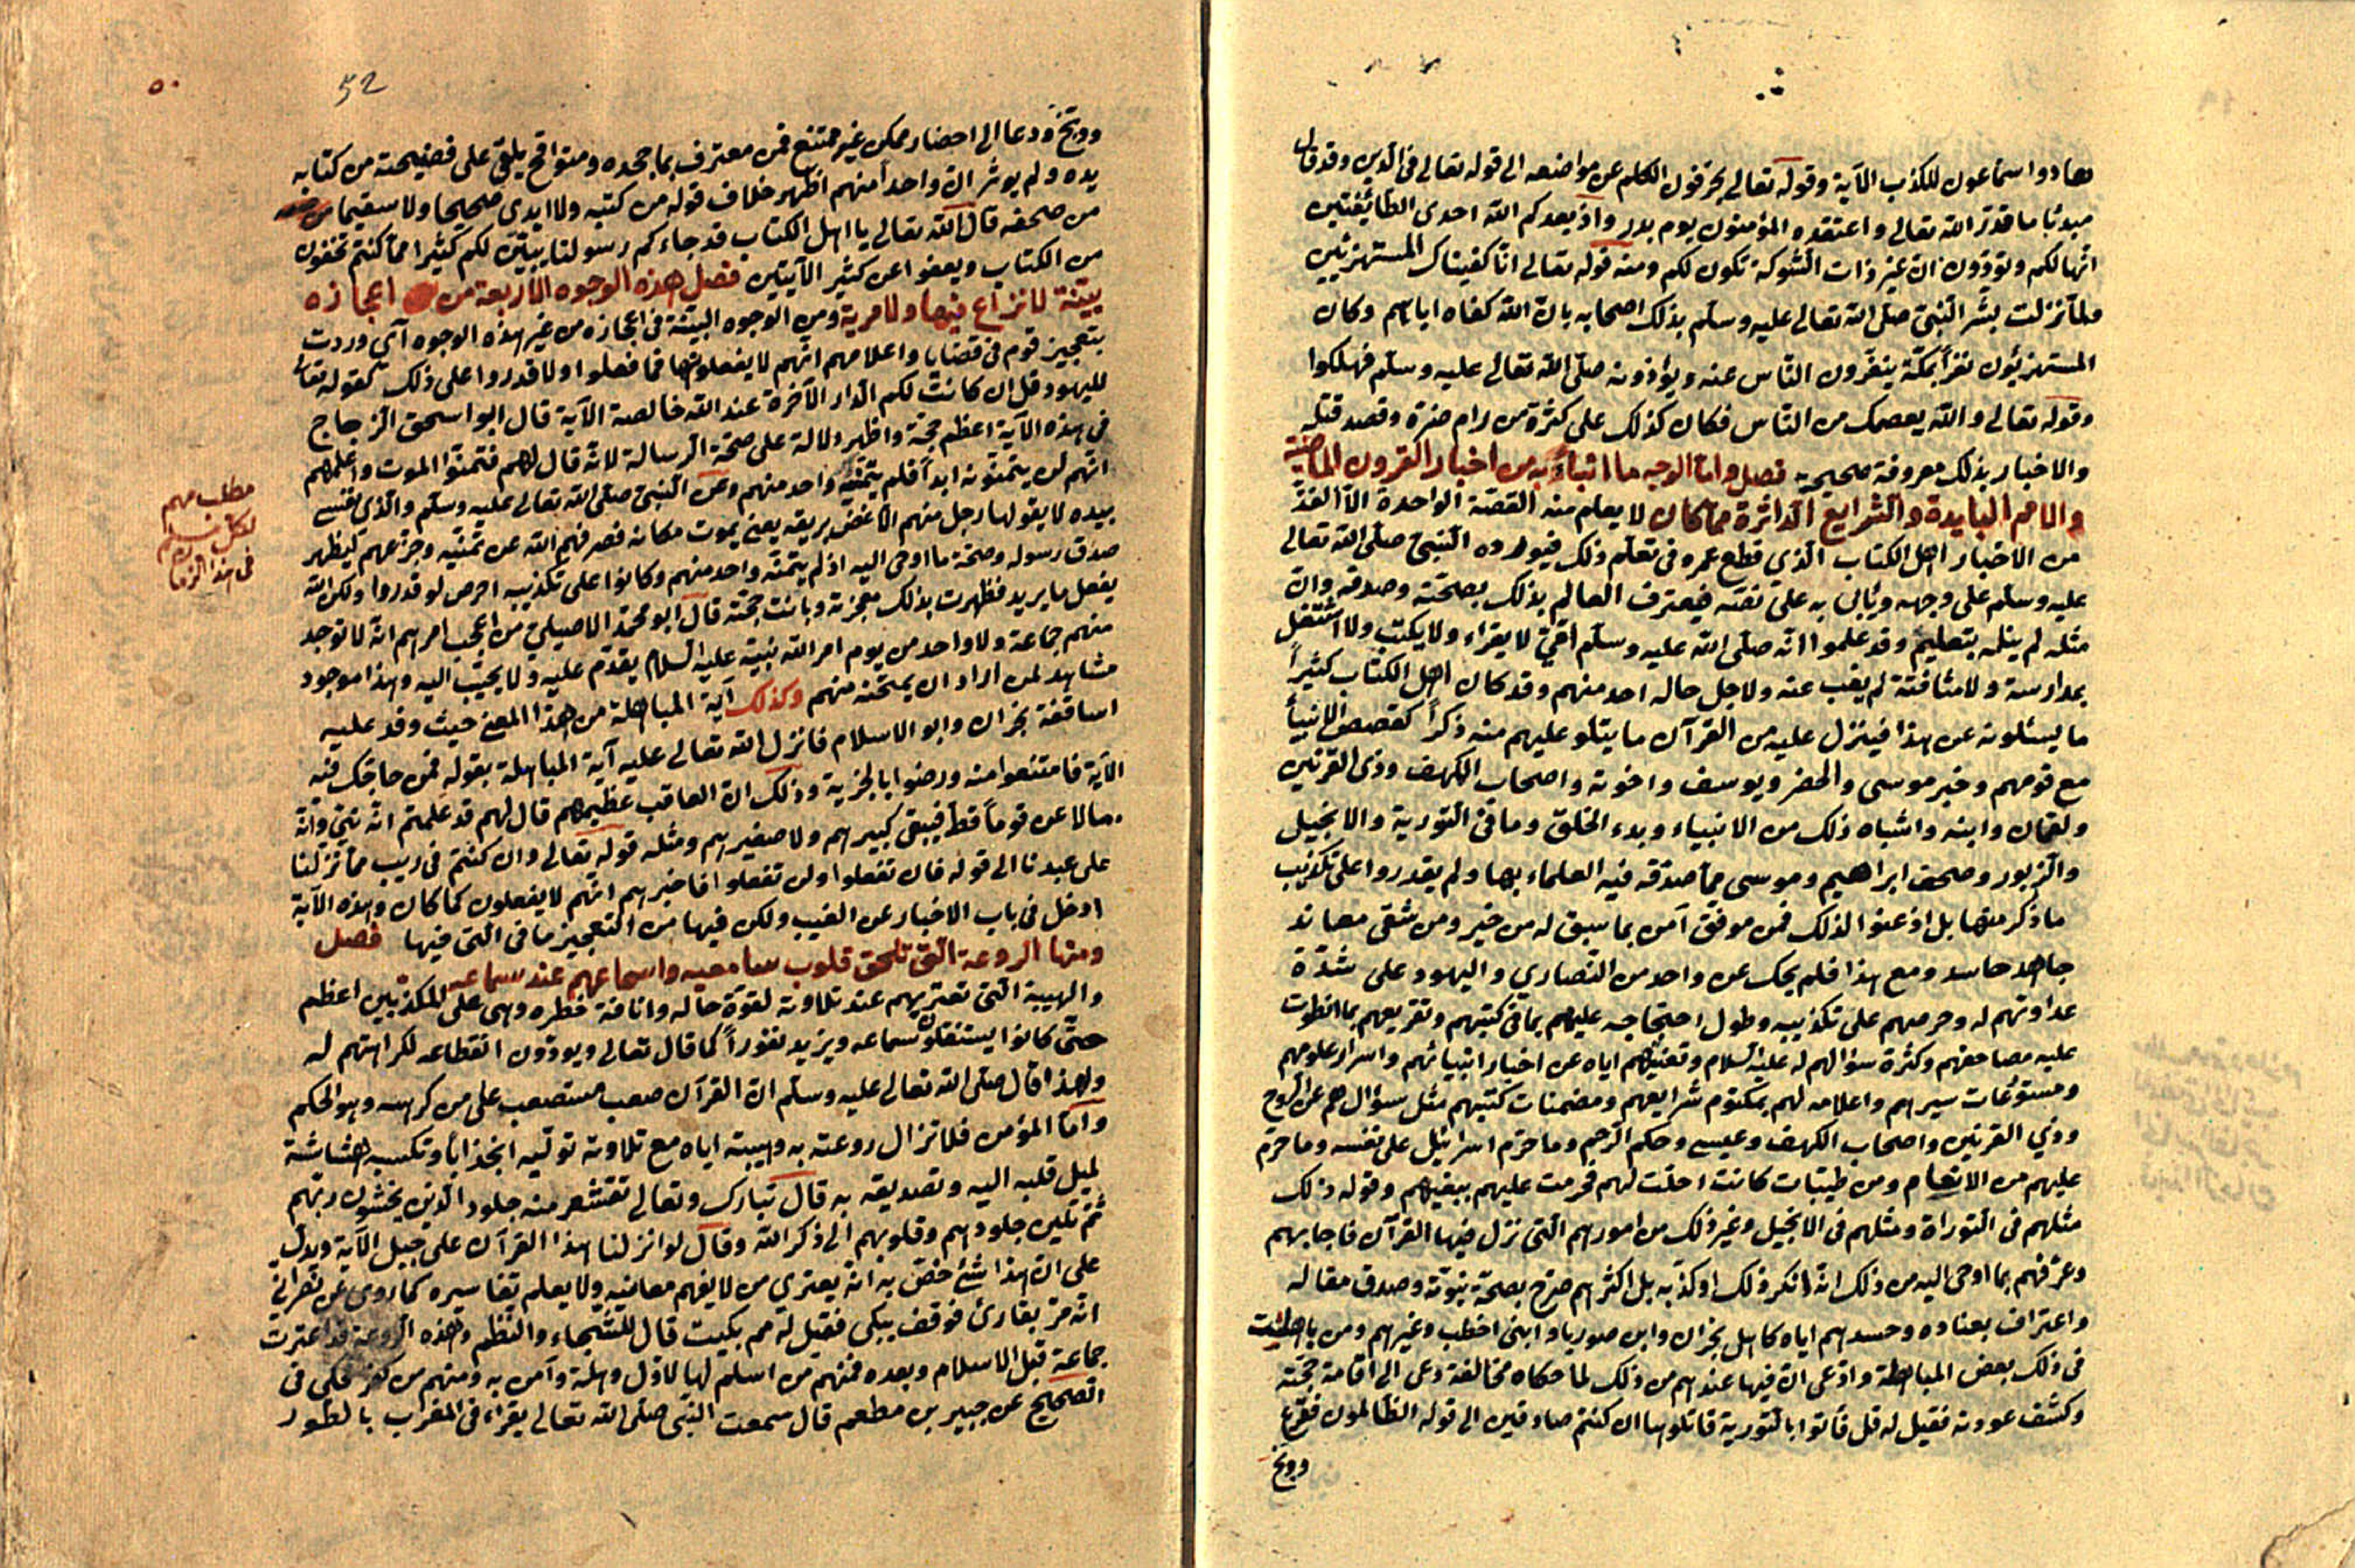 هادوا سماعون للكذب الآية وقوله تعالى يحرفون الكلم عن مواضعه الى قوله تعالى فى الدين وقد قال
مبدئا ما قدر الله تعالى واعتقده المؤمنون يوم بدر واذ يعدكم الله احدى الطائفتين
انها لكم وتودون ان غير ذات الشوكة تكون لكم ومنه قوله تعالى انا كفيناك المستهزئين
ولما نزلت بشر النبى صلى الله تعالى عليه وسلم بذلك اصحابه بان الله كفاه اياهم وكان
المستهزئون نفرا بمكة ينفرون الناس عنه ويؤذونه صلى الله تعالى عليه وسلم فهلكوا
وقوله تعالى والله يعصمك من الناس فكان كذلك على كثرة من رام ضره وقصد قتله
والاخبار بذلك معروفة صحيحة فصل واما الوجه ما انباء به من اخبار القرون الماضية
والامم البايدة والشرايع الداثرة مما كان لا يعلم منه القصة الواحدة الا الفذ
من الاخبار اهل الكتاب الذي قطع عمره فى تعلم ذلك فيورده النبى صلى الله تعالى
عليه وسلم على وجهه ويأتى به على نصه فيعترف العالم بذلك بصحته وصدقه وان
مثله لم ينله بتعليم وقد علموا انه صلى الله عليه وسلم امى لا يقراء ولا يكتب ولا اشتغل
بمدارسة ولا مثافنة لم يغب عنه ولا جهل حاله احد منهم وقد كان اهل الكتاب كثيرا
ما يسئلونه عن هذا فينزل عليه من القرآن ما يتلو عليهم منه ذكرا كقصص الانبيأ
مع قومهم وخبر موسى والخضر ويوسف واخوته واصحاب الكهف وذى القرنين
ولقمان وابنه واشباه ذلك من الانبياء وبدء الخلق وما فى التورية والانجيل
والزبور وصحف ابراهيم وموسى مما صدقه فيه العلماء بها ولم يقدروا على تكذيب
ما ذكر منها بل اذعنوا لذلك فمن موفق آمن بما سبق له من خير ومن شقى معاند
جاهد حاسد ومع هذا فلم يحك عن واحد من النصارى واليهود على شدة
عداوتهم له وحرصهم على تكذيبه وطول احتجاجه عليهم بما فى كتبهم وتقريعهم بما انطوت
عليه مصاحفهم وكثرة سؤالهم له عليه السلام وتعنيتهم اياه عن اخبار انبيائهم واسرار علومهم
ومستودعات سيرهم واعلامه لهم بمكتوم شرايعهم ومضمنات كتبهم مثل سؤالهم عن الروح
وذي القرنين واصحاب الكهف وعيسى وحكم الرجم وما حرم اسرائيل على نفسه وما حرم
عليهم من الانعام ومن طيبات كانت احلت لهم فحرمت عليهم ببغيهم وقوله ذلك
مثلهم فى التوراة ومثلهم فى الانجيل وغير ذلك من امورهم التى نزل فيها القرآن فاجابهم
وعرفهم بما اوحى اليه من ذلك انه انكر ذلك او كذبه بل اكثرهم صرح بصحة نبوته وصدق مقاله
واعترف بعناده وحسدهم اياه كاهل نجران وابن صوريا وابنى اخطب وغيرهم ومن باهت
فى ذلك بعض المباهتة وادعى ان فيها عندهم من ذلك لما حكاه مخالفة دعى الى اقامة حجته
وكشف عورته فقيل له قل فأتوا بالتورية فاتلوها ان كنتم صادقين الى قوله الظالمون فقرع
ووبخ
52
٥٠
ووبخ ودعا الى احضار ممكن غير ممتنع فمن معترف بما جحده ومتواقح يلقى على فضيحته من كتابه
يده ولم يوثر ان واحدا منهم اظهر خلاف قوله من كتبه ولا ابدى صحيحا ولا سقيما
من صحفه قال الله تعالى يا اهل الكتاب قد جاءكم رسولنا يبين لكم كثيرا مما كنتم تخفون
من الكتاب ويعفوا عن كثير الآيتين فصل هذه الوجوه الاربعة من اعجازه
بينة لا نزاع فيها ولا مرية ومن الوجوه البينة فى اعجازه من غير هذه الوجوه آى وردت
بتعجيز قوم فى قضايا واعلامهم انهم لا يفعلونها فما فعلوا ولا قدروا على ذلك كقوله تعالى
لليهود قل ان كانت لكم الدار الآخرة عند الله خالصة الآية قال ابو اسحق الزجاج
فى هذه الآية اعظم حجة واظهر دلالة على صحة الرسالة لانه قال لهم فتمنوا الموت واعلمهم
انهم لن يتمنونه ابدا فلم يتمنه واحد منهم وعن النبى صلى الله تعالى عليه وسلم والذى نفسى
بيده لا يقولها رجل منهم الا غص بريقه يعنى يموت مكانه فصرفهم الله عن تمنيه وجزعهم ليظهر
صدق رسوله وصحة ما اوحى اليه اذ لم يتمنه واحد منهم وكانوا على تكذيبه احرص لو قدروا ولكن الله
يفعل ما يريد فظهرت بذلك معجزته وبانت حجته قال ابو محمد الاصيلى من اعجب امرهم انه لا توجد
منهم جماعة ولا واحد من يوم امر الله نبيه عليه السلام يقدم عليه ولا يجيب اليه وهذا موجود
مشاهد لمن اراد ان يمتحنه منهم وكذلك آية المباهلة من هذا المعنى حيث وفد عليه
اساقفة نجران وابو الاسلام فانزل الله تعالى عليه آية المباهلة بقوله فمن حاجك فيه
الآية فامتنعوا منه ورضوا بالجزية وذلك ان العاقب عظيمهم قال لهم قد علمتم انه نبى وانه
ما لاعن قوما قط فيبقى كبيرهم ولا صغيرهم ومثله قوله تعالى وان كنتم فى ريب مما نزلنا
على عبدنا الى قوله فان تفعلوا ولن تفعلوا فاخبرهم انهم لا يفعلون كما كان وهذه الآية
ادخل فى باب الاخبار عن الغيب ولكن فيها من التعجيز ما فى التى فيها فصل
ومنها الروعة التى تلحق قلوب سامعيه واسماعهم عند سماعه
والهيبة التى تعتريهم عند تلاوته لقوة حاله وانافة خطره وهى على المكذبين اعظم
حتى كانوا يستثقلون سماعه ويزيد نفورا كما قال تعالى ويودون انقطاعه لكراهتهم له
ولهذا قال صلى الله تعالى عليه وسلم ان القرآن صعب مستصعب على من كرهه وهو الحكم
واما المؤمن فلا تزال روعته به وهيبته اياه مع تلاوته توليه انجذابا وتكسبه هشاشة
لميل قلبه اليه وتصديقه به قال تبارك وتعالى تقشعر منه جلود الذين يخشون ربهم
ثم تلين جلودهم وقلوبهم الى ذكر الله وقال لو انزلنا هذا القرآن على جبل الآية ويدل
على ان هذا شئ خص به انه يعترى من لا يفهم معانيه ولا يعلم تفاسيره كما روى عن نصرانى
انه مر بقارئ فوقف يبكى فقيل له مم بكيت قال للشجاء والنظم وهذه الروعة قد اعترت
جماعة قبل الاسلام وبعده فمنهم من اسلم لها لاول وهلة وآمن به ومنهم من كفر فحكى فى
الصحيح عن جبير بن مطعم قال سمعت النبى صلى الله تعالى يقراء فى المغرب بالطور
مطلب مهم
لكل
فى هذا الزمان